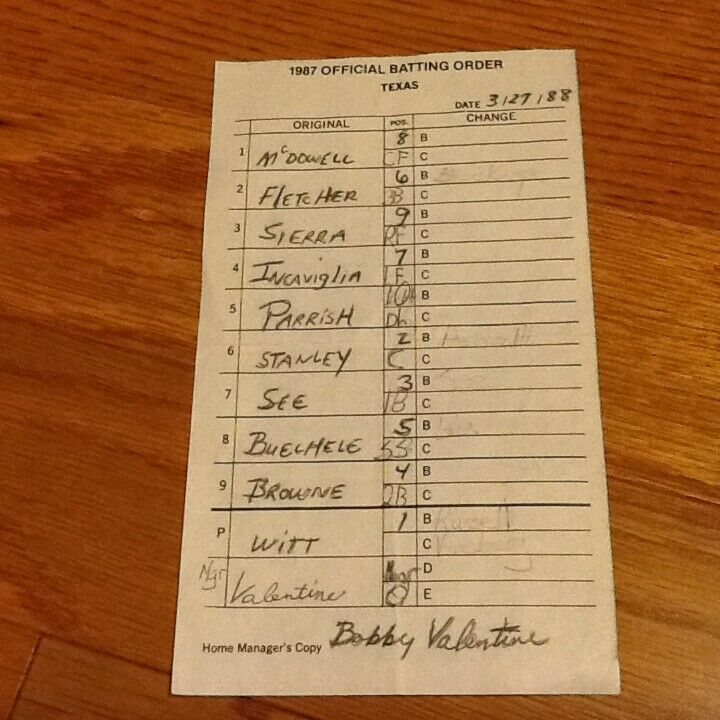 1987 OFFICIAL BATTING ORDER
TEXAS
DATE 3/27/88
ORIGINAL POS. CHANGE
1 McDOWELL 8 CF B C
2 FLETCHER 6 B C
3 SIERRA 9 RF B C
4 INCAVIGLIA 7 LF B C
5 PARRISH 10 Dh B C
6 STANLEY 2 C B C
7 SEE 3 1B B C
8 BUECHELE 5 SS B C
9 BROWNE 4 2B B C
P WITT 1 B C
Mgr Valentine Mgr D E
Home Manager's Copy Bobby Valentine